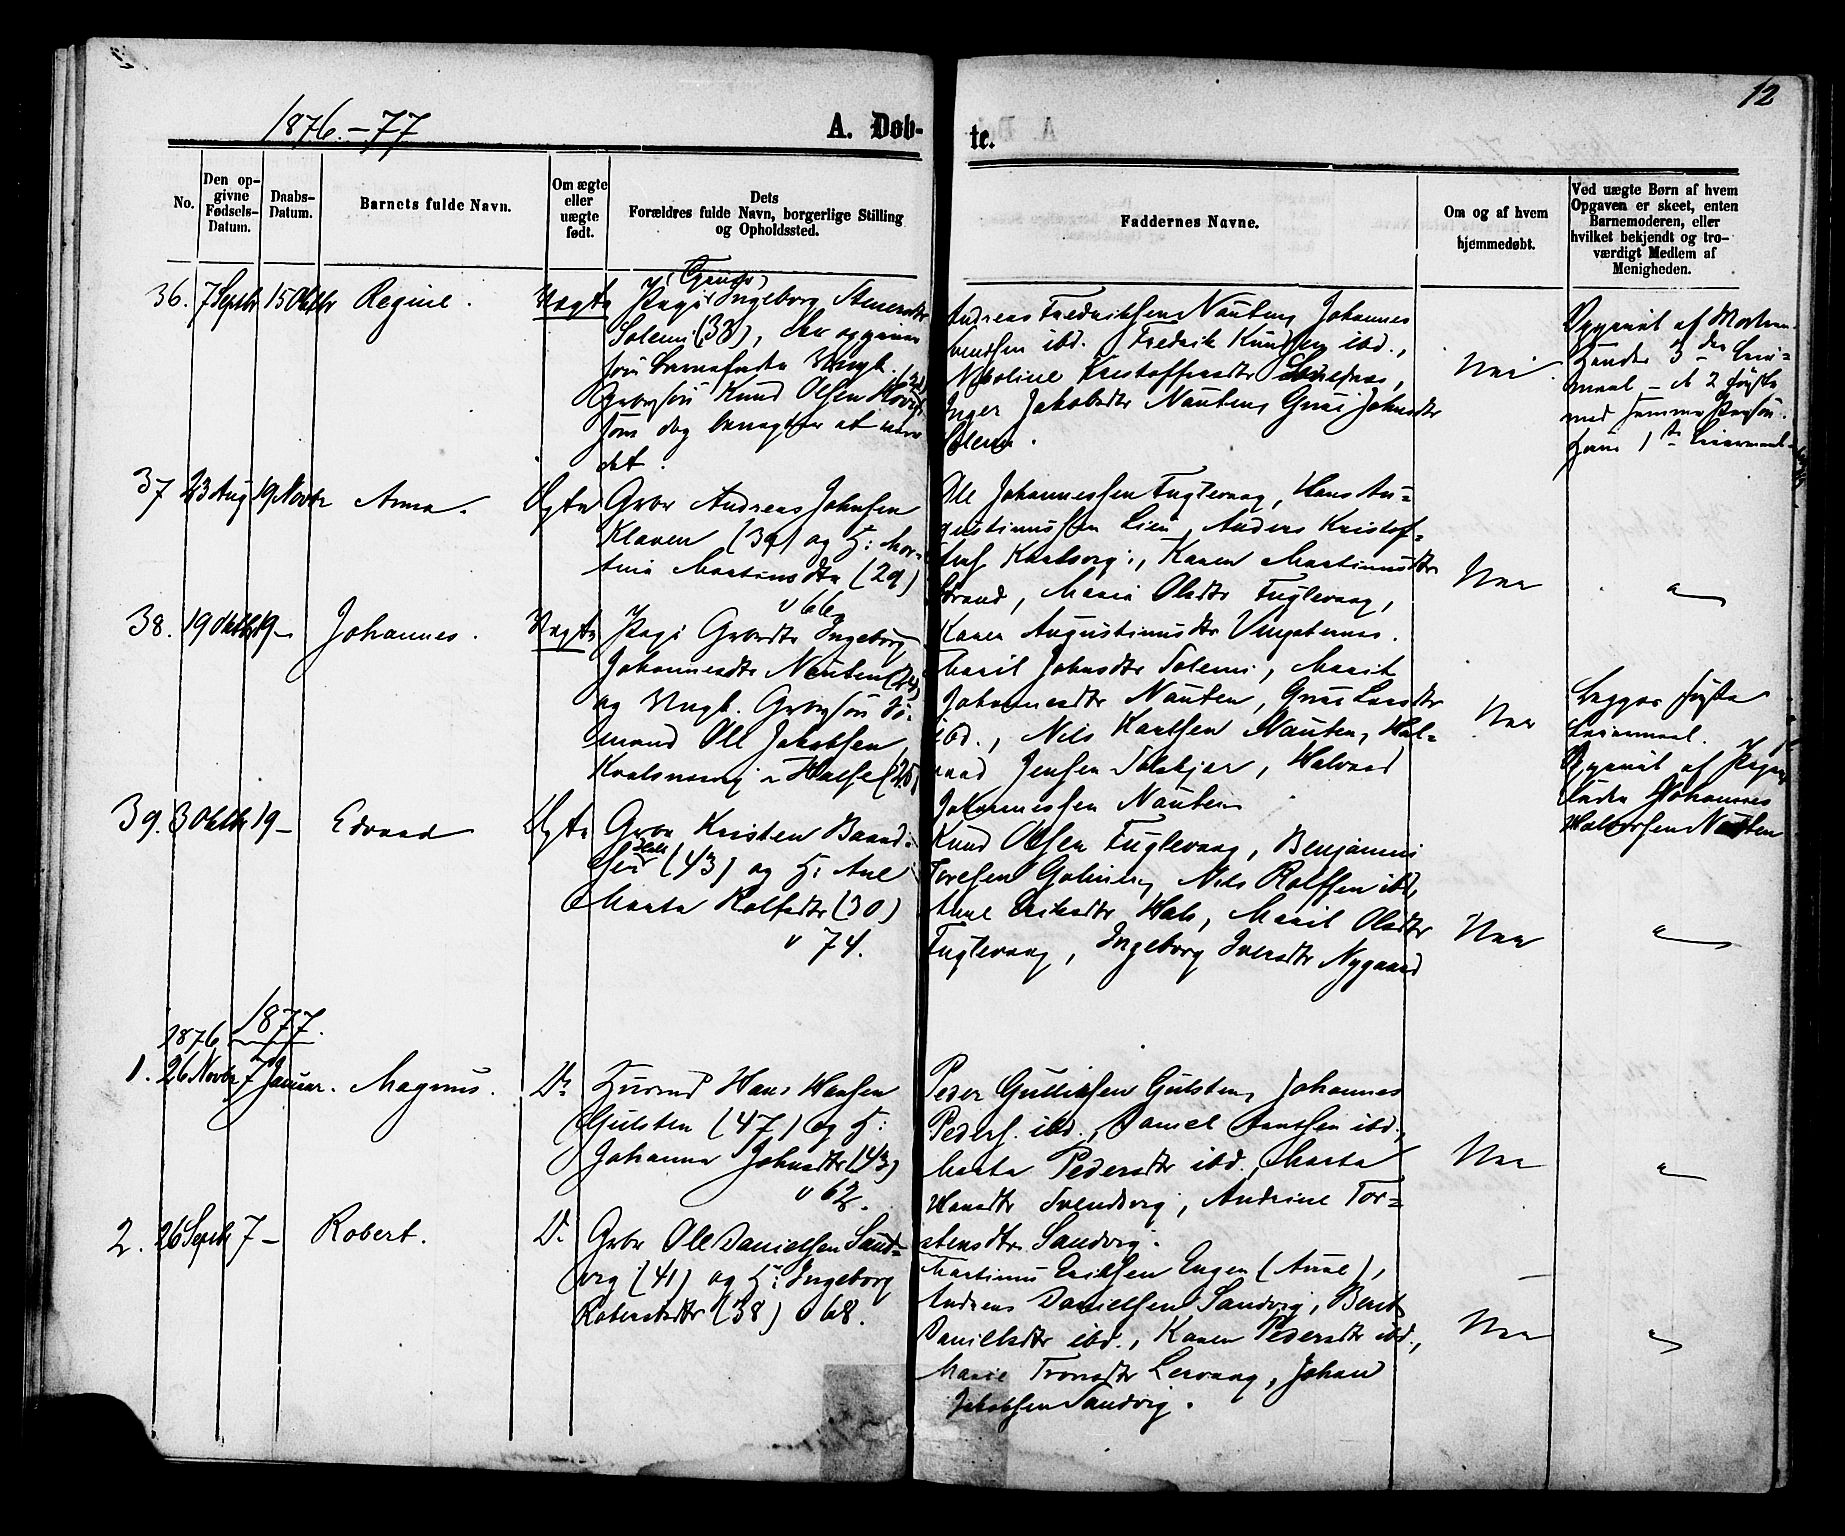 12
1876.-77
A. Døb-
te.
No.
Den op-
givne
Fødsels-
Datum.
Daabs-
Datum.
Barnets fulde Navn.
Om ægte
eller
uægte
født.
Dets
Forældres fulde Navn, borgerlige Stilling
og Opholdssted.
Faddernes Navne.
Om og af hvem
hjemmedøbt.
Ved uægte Børn af hvem
Opgaven er skeet, enten
Barnemoderen, eller
hvilket bekjendt og tro-
værdigt Medlem af
Menigheden.
36. 7 Septbr 15 Oktbr Regine. Uægte Pige Ingeborg
Solem (33), der opgiver
som Barnefader Ungk.
Grbrsøn Knud Olsen
som dog benegter at være
det.
Andreas Fredriksen Nausten, Johannes
ibd. Fredrik Knudsen ibd.,
Nikoline Kristoffersdtr
Inger Jakobsdtr Nausten, Guri Johnsdtr
Solem.
Nei
Opgivet af Moderen.
med samme Person.
37 23 Aug 19 Novbr Anna. Ægte Grbr Andreas Johnsen
Klaven (39) og H: Mar-
Martinsdtr (29)
v 66
Ole Johannessen Fuglevaag, Hans Au-
gustinussen Lien, Anders Kristof-
fersen Karlsvig, Karen Martinusdtr
Strand, Marie Olsdtr Fuglevaag,
Karen Augustinusdtr
Nei
"
38. 19 Oktbr 19- Johannes. Uægte Pige Grbrdtr Ingeborg
Johannesdtr Nausten (24)
og Ungk. Grbrsøn Sø-
mand Ole Jakobsen
Kvalsnes i Halse (25)
Marit Johnsdtr Solem, Marit
Johannesdtr Nausten, Guri Larsdtr
ibd., Nils Karlsen Nausten, Hal-
vard Jensen Solskjær, Halvard
Johannessen Nausten
Nei
Begges første
Leiermaal.
Opgivet af Pigens
Fader Johannes
Halvorsen Nausten
39. 3 Oktbr 19- Edvard Ægte Grbr Kristen Baard-
sen Hals (43) og H: Ane
Marta Rolfsdtr (30)
v 74.
Knud Olsen Fuglevaag, Benjamin
Toresen Nils Rolfsen ibd.
Ane Eriksdtr Hals, Marit Olsdtr
Fuglevaag, Ingeborg Iversdtr Nygaard
Nei
"
1877.
1876
1. 26 Novbr 7 Januar. Magnus. Do Husmd Hans Hansen
Gulsten (47) og H:
Johanna Johnsdtr (43)
v 62.
Peder Gulliksen Gulsten, Johannes
Peders. ibd., Daniel Larsen ibd.,
Marta Pedersdtr ibd., Marta
Hansdtr Svendsvig, Andrine Tor-
stensdtr Sandvig.
Nei
"
2. 26 Septbr 7- Robert. Do Grbr Ole Danielsen Sand-
vig (41) og H: Ingeborg
Robertsdtr (38) v 68.
Martinus Eriksen Engen (Aure),
Andreas Danielsen Sandvig, Berit
Danielsdtr ibd., Karen Pedersdtr ibd.,
Marie Tronsdtr Lervaag, Johan
Jakobsen Sandvig.
Nei
"